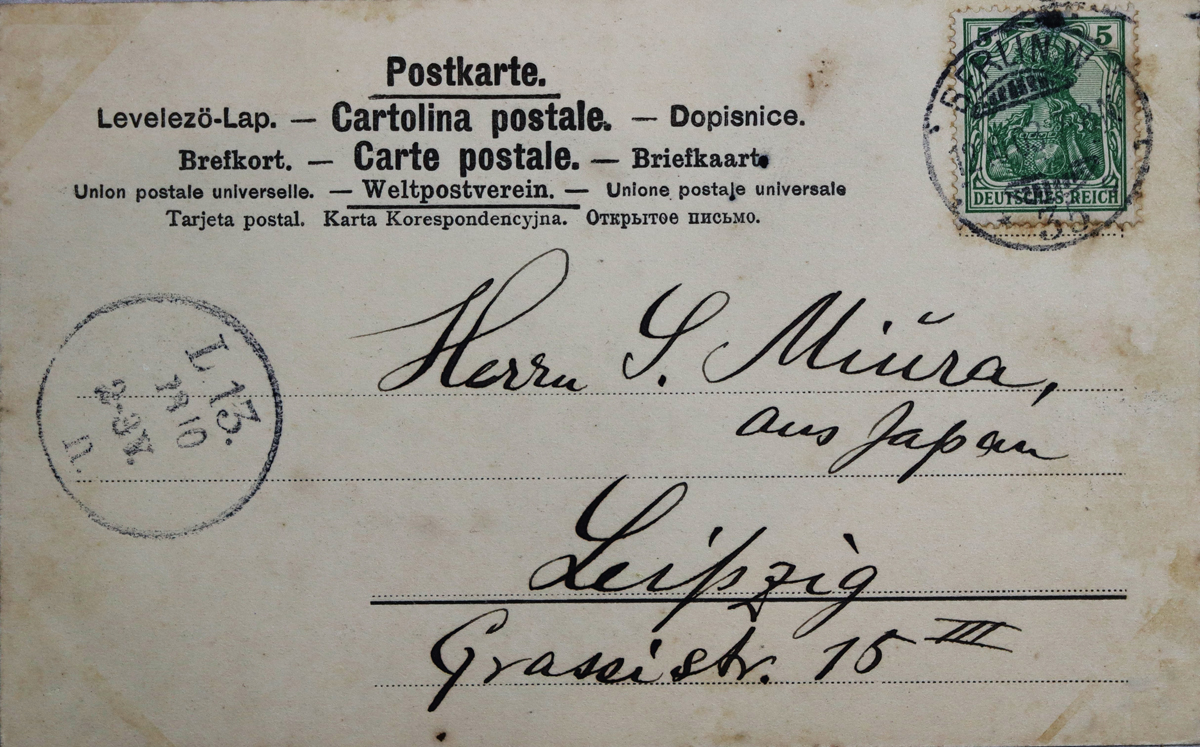 Postkarte.
Levelezö-Lap. — Cartolina postale. — Dopisnice.
Brefkort. — Carte postale. — Briefkaart.
Union postale universelle. — Weltpostverein. — Unione postale universale
Tarjeta postal. Karta Korespondencyjna. Открытое письмо.
5 5
BERLIN W
DEUTSCHES REICH
35
L. 13.
10
Herrn S. Miūra,
aus Japan
Leipzig
Grassistr. 15 III